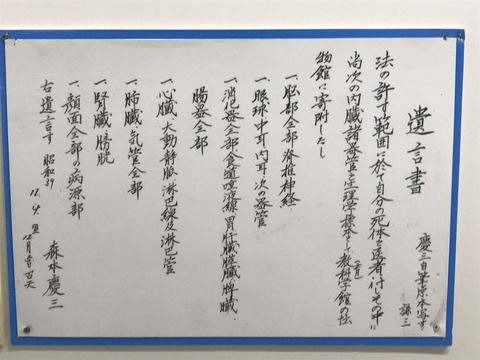 遺言書
慶三自筆原本写す
謙三
法の許す範囲に於て自分の死体を医者に付しその中に
尚次の内臓諸器管を生理学標本として教科学館の
物館に寄附したし
一、脳部全部脊椎神経
一、眼球中耳内耳次の器管
一、消化器全部食道唾液線胃肝臓膵臓脾臓
腸器全部
一、心臓大動静脈淋巴線及淋巴管
一、肺臓気管全部
一、腎臓膀胱
一、顔面全部の病源部
右遺言す 昭和39
森本慶三